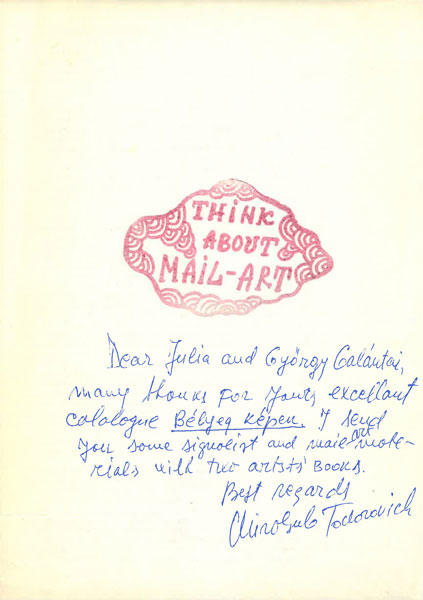 THiNK
ABOUT
MAiL-ART
Dear Julia and György Galántai,
many thanks for Yours excellent
catalogue Bélyeg képen. I send
you some signalist and mail-art mate-
rials with two artists' books.
Best regards
Miroljub Todorovich